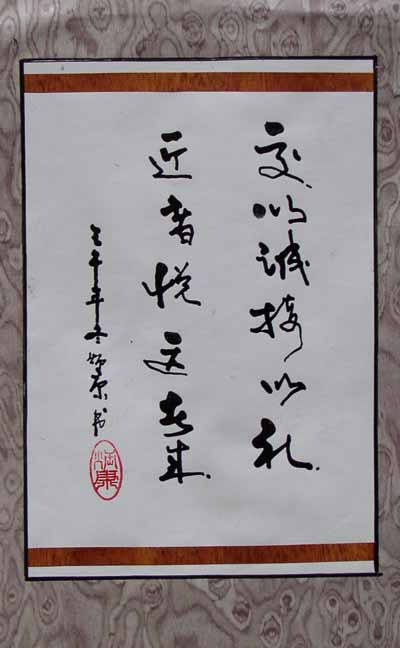 交以诚接以礼
近者悦远者来
壬午年冬书